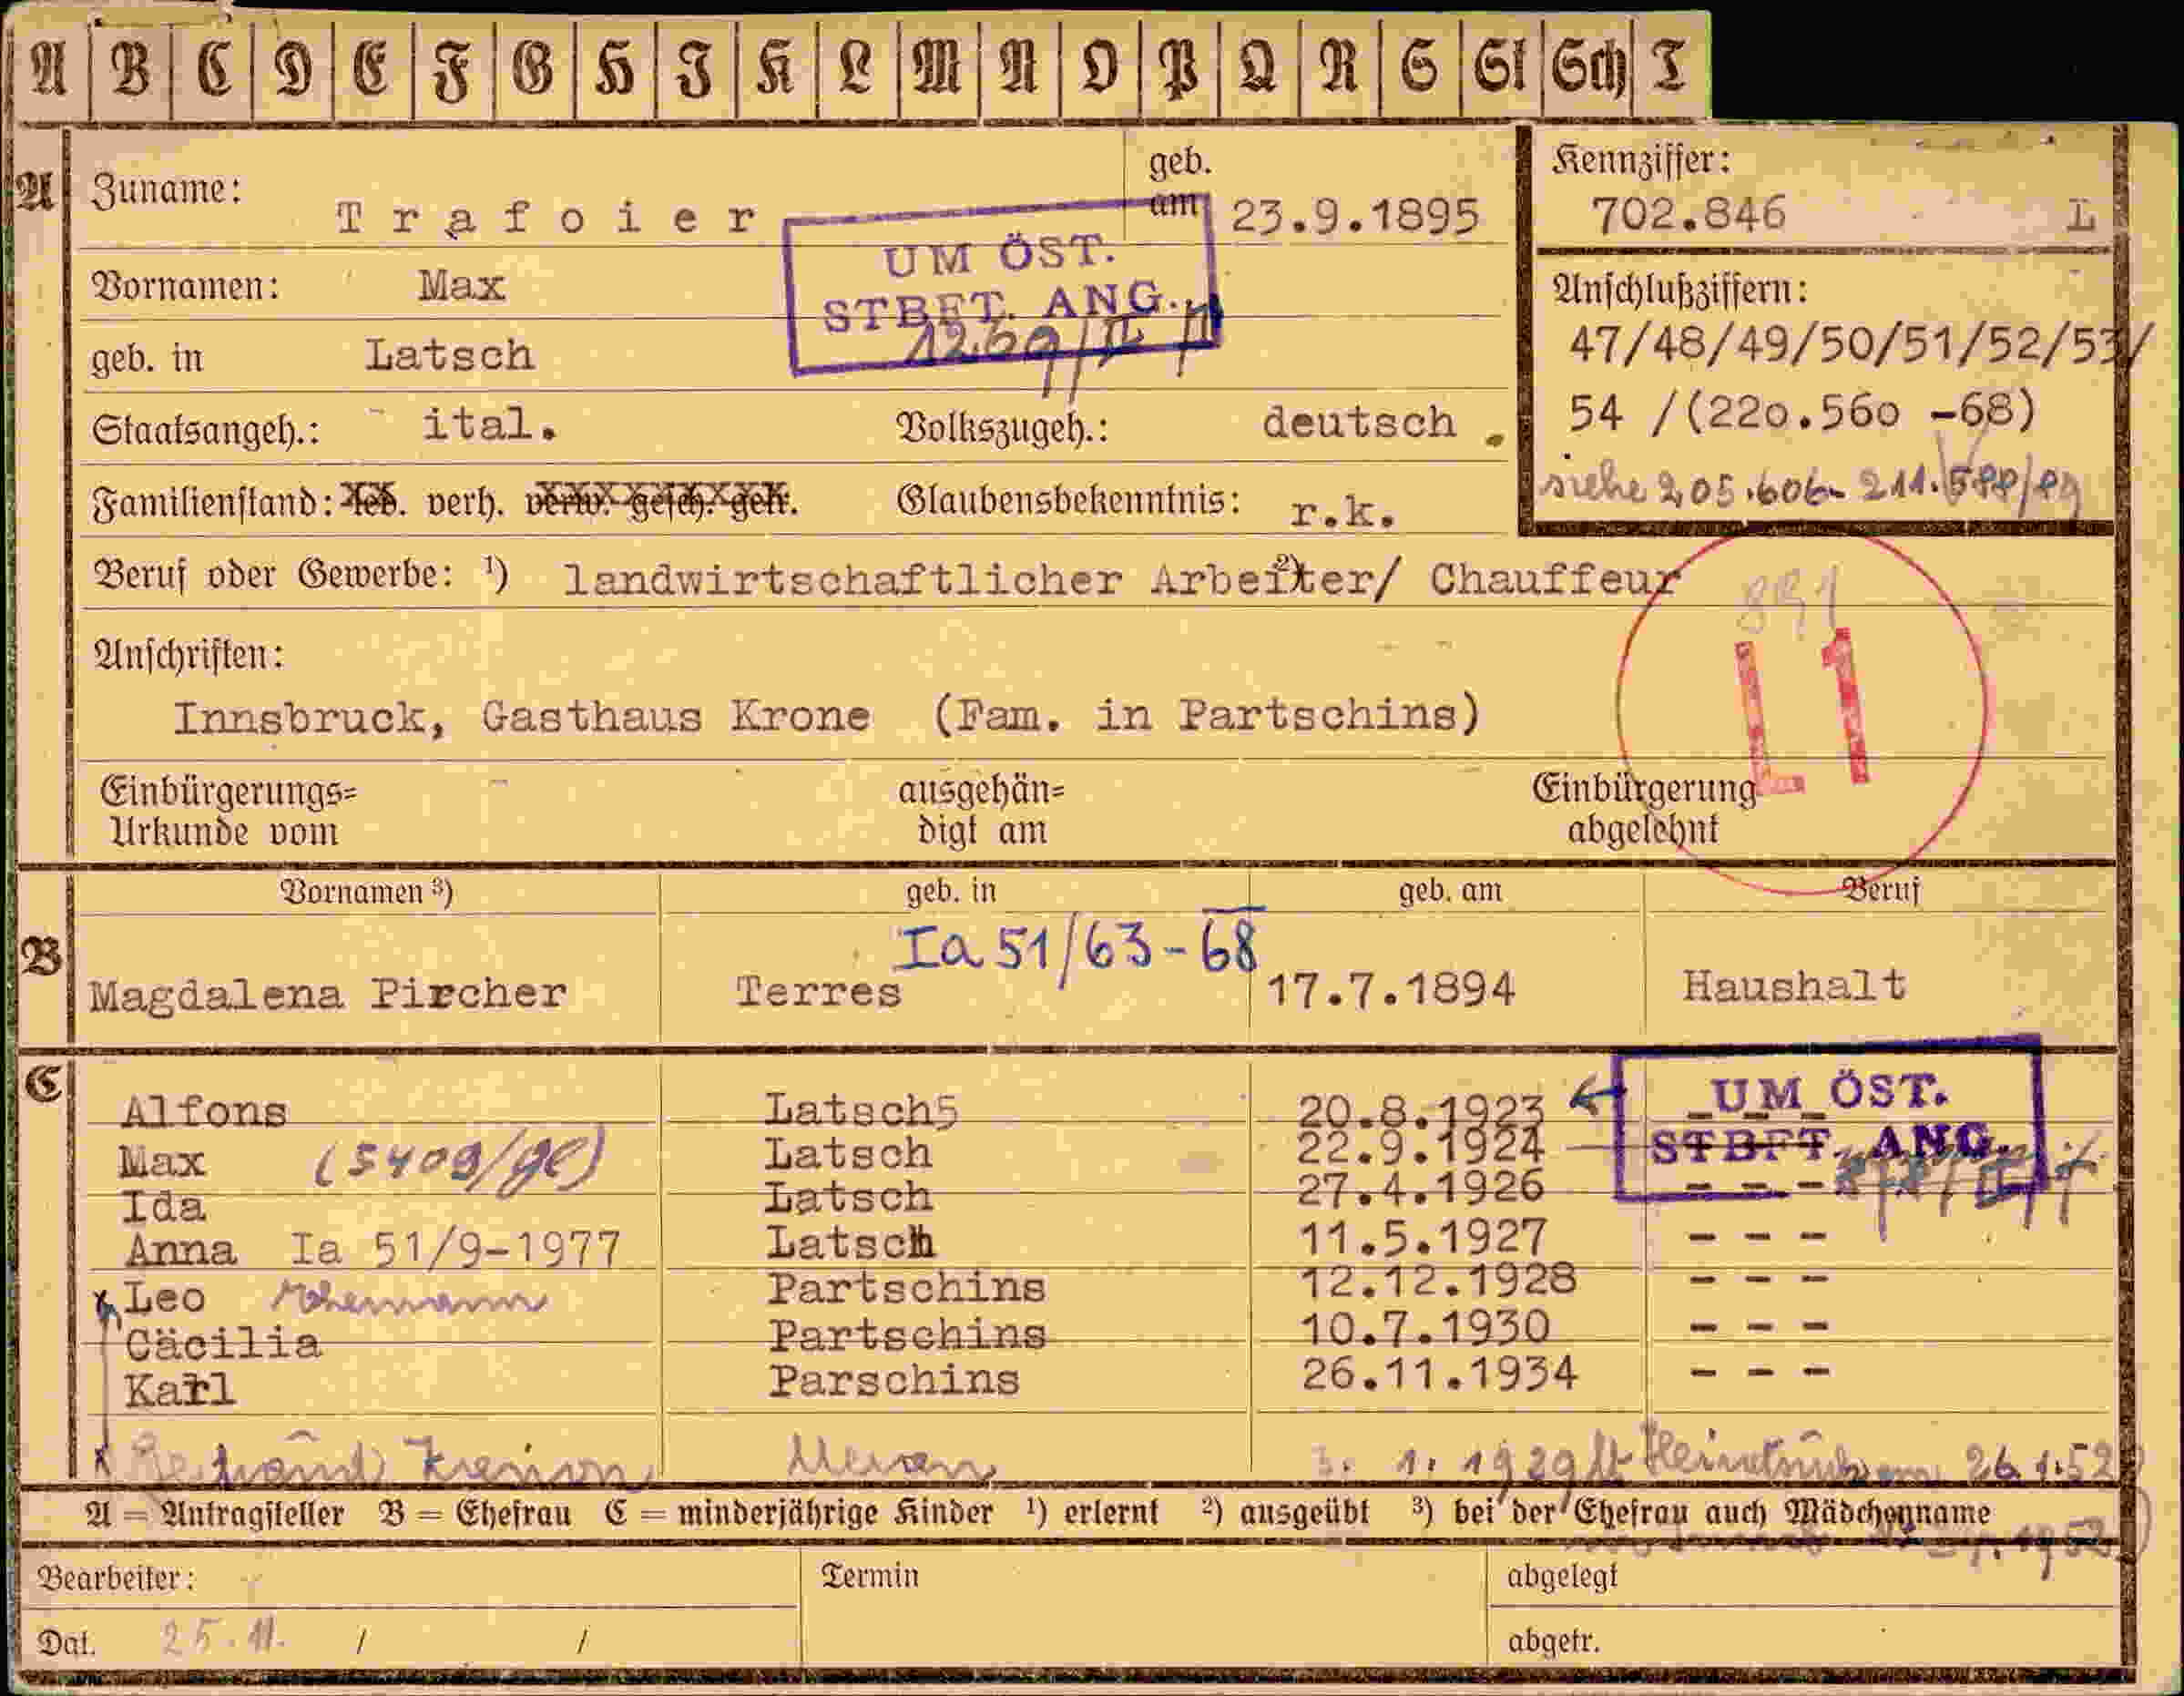 A B C D E F G H I K L M N O P Q R S St Sch T
A
Zuname: Trafoier
geb. am 23.9.1895
Kennziffer:
702.846 L
UM ÖST.
STBFT. ANG.
Vornamen: Max
geb. in Latsch
Anschlußziffern:
47/48/49/50/51/52/53/
54 /(220.560 -68)
siehe 205.606- 211.588/89
Staatsangeh.: ital. Volkszugeh.: deutsch .
Familienstand: led. verh. verw. gesch. getr. Glaubensbekenntnis: r.k.
Beruf oder Gewerbe: ¹) landwirtschaftlicher Arbeiter/ ²) Chauffeur
891
L1
Anschriften:
Innsbruck, Gasthaus Krone (Fam. in Partschins)
Einbürgerungs=
Urkunde vom
ausgehän=
digt am
Einbürgerung
abgelehnt
B
Vornamen ³) geb. in geb. am Beruf
Ia 51/63-68
Magdalena Pircher Terres 17.7.1894 Haushalt
C
UM ÖST.
STBFT. ANG.
Alfons Latsch5 20.8.1923 - - -
Max (5409/ge) Latsch 22.9.1924 - - -
Ida Latsch 27.4.1926 - - -
Anna Ia 51/9-1977 Latsch 11.5.1927 - - -
Leo Partschins 12.12.1928 - - -
Cäcilia Partschins 10.7.1930 - - -
Karl Parschins 26.11.1934 - - -
Meran 1. 1929 26.1.52
A = Antragsteller B = Ehefrau C = minderjährige Kinder ¹) erlernt ²) ausgeübt ³) bei der Ehefrau auch Mädchenname
1952
Bearbeiter: Termin abgelegt
Dat. 25.11. / / abgetr.